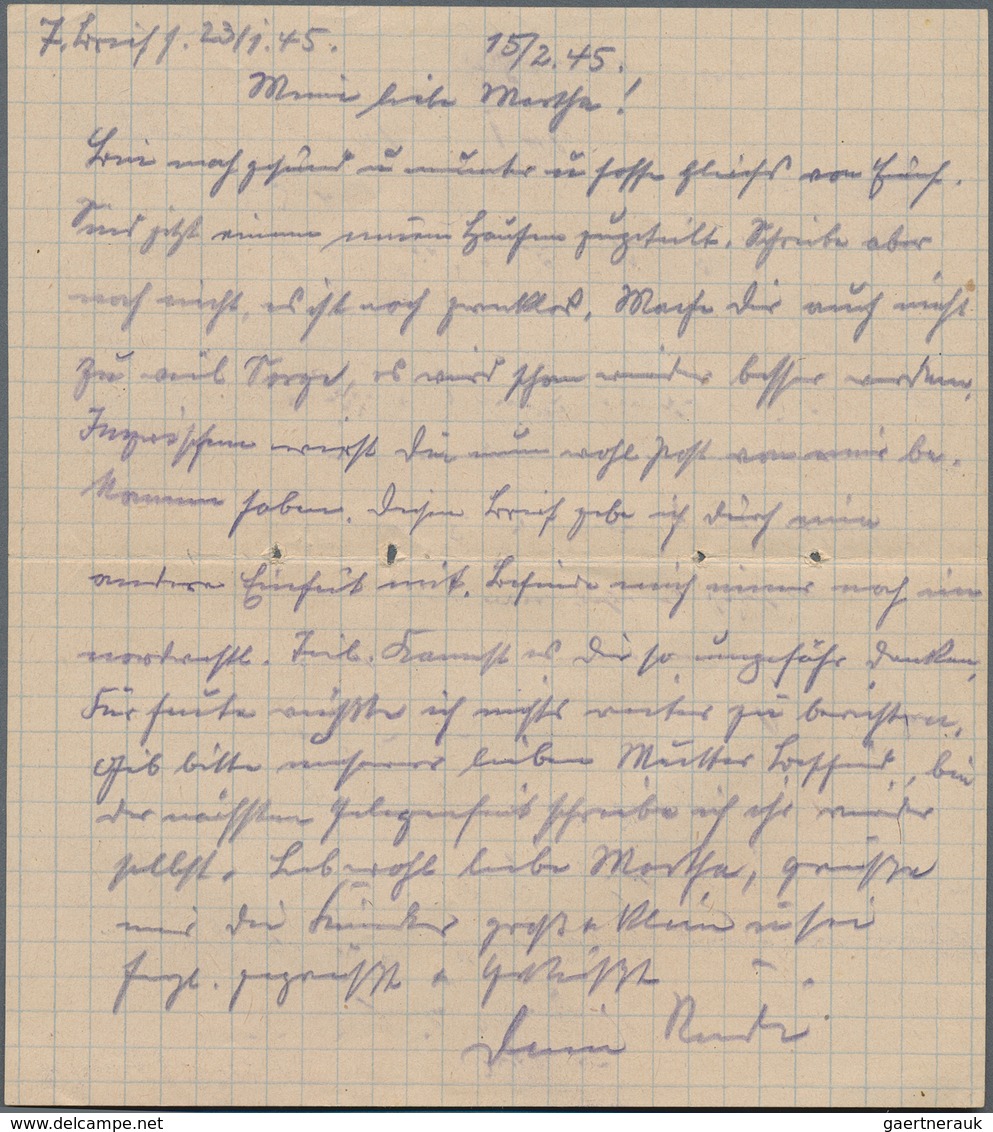 7. Brief s. 23/1.45. 15/2.45.
Meine liebe Martha!
Bin noch gesund u munter u hoffe gleichs von Euch.
Sind jetzt einem neuen Haufen zugeteilt. Schreibe aber
noch nicht, es ist noch zwecklos. Mache Dir auch nicht
zu viel Sorge, es wird schon wieder besser werden.
Inzwischen wirst Du nun wohl Post von mir be-
kommen haben. Diesen Brief gebe ich durch eine
andere Einheit mit. Befinde mich immer noch im
nordwestl. Teil. Kannst es Dir so ungefähr denken.
Für heute wüßte ich nichts weiter zu berichten.
Gib bitte unserer lieben Mutter Bescheid, bei
der nächsten Gelegenheit schreibe ich ihr wieder
selbst. Leb wohl liebe Martha, grüße
mir die Kinder groß u klein u sei
herzl. gegrüßt u geküßt
Dein Rudi
gaertnerauk